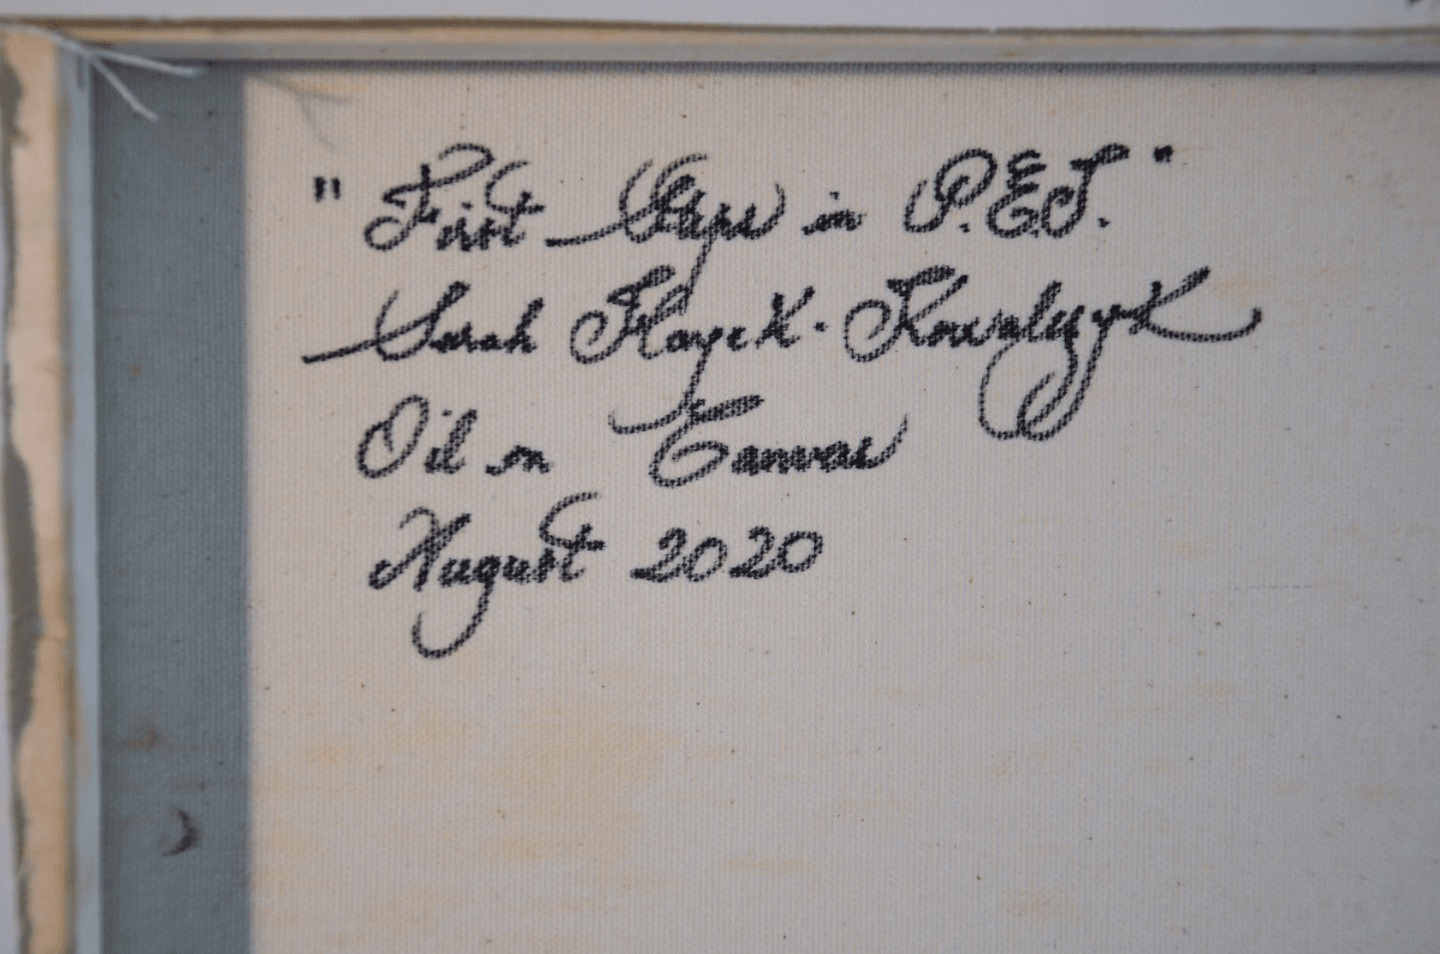 "First Steps in P.E.I."
Sarah Hayek-Kowalczyk
Oil on Canvas
August 2020